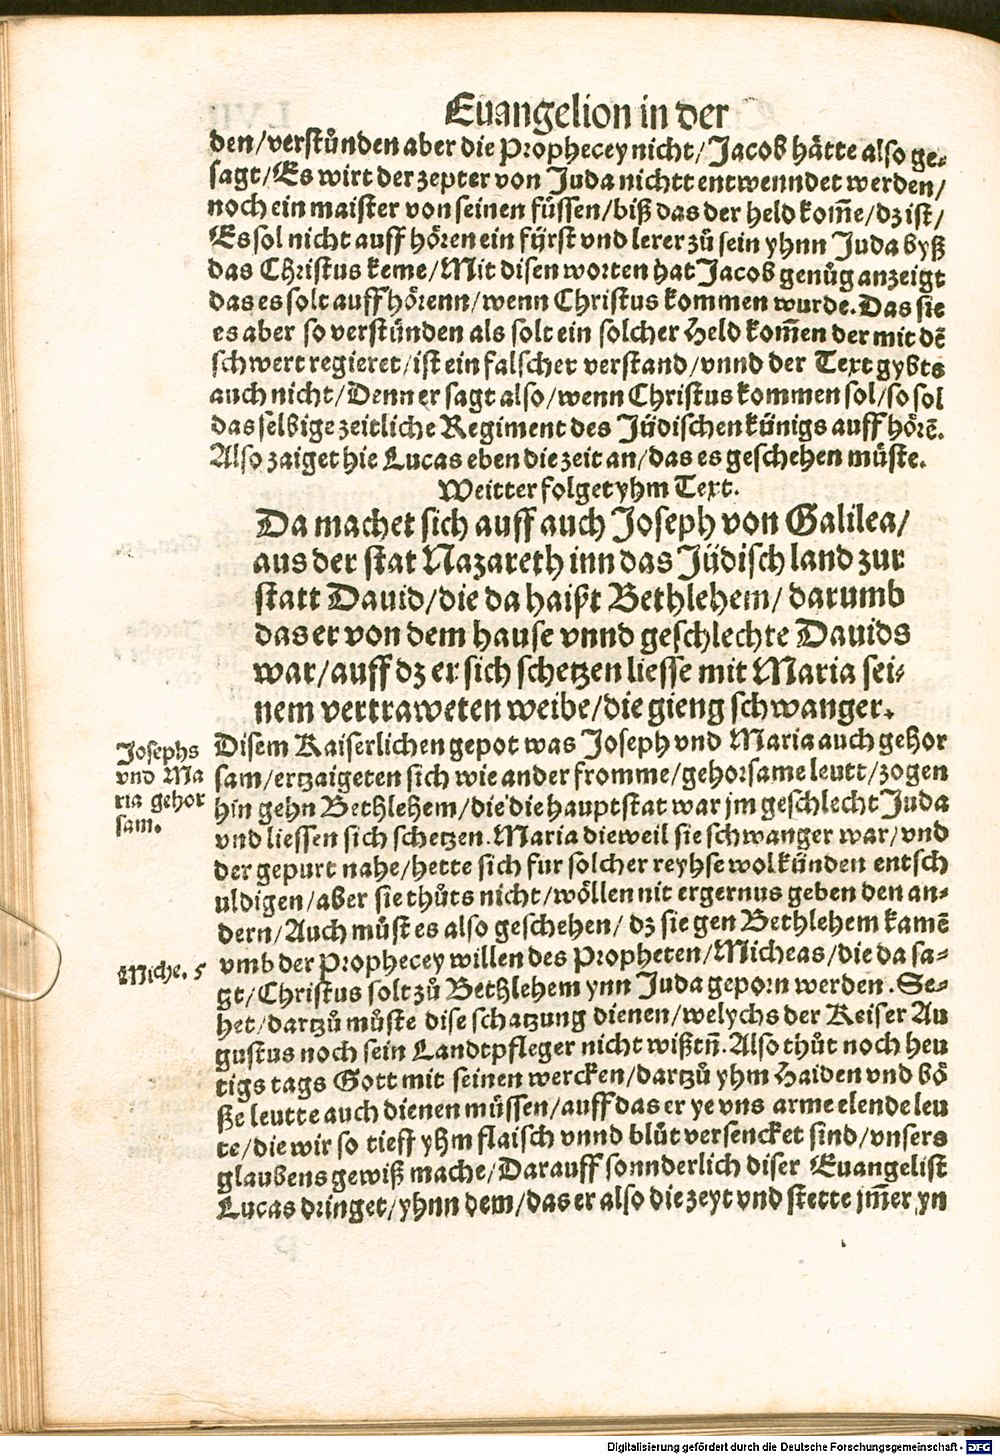 Euangelion in der
den/verstůnden aber die Prophecey nicht/Jacob hätte also ge-
sagt/Es wirt der zepter von Juda nichtt entwenndet werden/
noch ein maister von seinen füssen/biß das der held kom̃e/dz ist/
Es sol nicht auff hören ein fÿrst vnd lerer zů sein yhnn Juda byß
das Christus keme/Mit disen worten hat Jacob genůg anzeigt
das es solt auff hörenn/wenn Christus kommen wurde. Das sie
es aber so verstünden als solt ein solcher Held kom̃en der mit dẽ
schwert regieret/ist ein falscher verstand/vnnd der Text gybts
auch nicht/Denn er sagt also/wenn Christus kommen sol/so sol
das selbige zeitliche Regiment des Jüdischen künigs auff hörẽ.
Also zaiget hie Lucas eben die zeit an/das es geschehen müste.
Weitter folget yhm Text.
Da machet sich auff auch Joseph von Galilea/
aus der stat Nazareth inn das Jüdisch land zur
statt Dauid/die da haißt Bethlehem/darumb
das er von dem hause vnnd geschlechte Dauids
war/auff dz er sich schetzen liesse mit Maria sei-
nem vertraweten weibe/die gieng schwanger.
Josephs
vnd Ma
ria gehor
sam.
Disem Kaiserlichen gepot was Joseph vnd Maria auch gehor
sam/ertzaigeten sich wie ander fromme/gehorsame leutt/zogen
hin gehn Bethlehem/die die hauptstat war jm geschlecht Juda
vnd liessen sich schetzen. Maria dieweil sie schwanger war/vnd
der gepurt nahe/hette sich fur solcher reyhse wol künden entsch
uldigen/aber sie thůts nicht/wöllen nit ergernus geben den an-
dern/Auch müst es also geschehen/dz sie gen Bethlehem kamẽ
Miche. 5
vmb der Prophecey willen des Propheten/Micheas/die da sa-
gt/Christus solt zů Bethlehem ynn Juda geporn werden. Se-
het/dartzů můste dise schatzung dienen/welychs der Keiser Au
gustus noch sein Landtpfleger nicht wißtñ. Also thůt noch heu
tigs tags Gott mit seinen wercken/dartzů yhm Haiden vnd bö
ße leutte auch dienen müssen/auff das er ye vns arme elende leu
te/die wir so tieff yhm flaisch vnnd blůt versencket sind/vnsers
glaubens gewiß mache/Darauff sonnderlich diser Euangelist
Lucas dringet/yhnn dem/das er also die zeyt vnd stette jm̃er yn
Digitalisierung gefördert durch die Deutsche Forschungsgemeinschaft - DFG